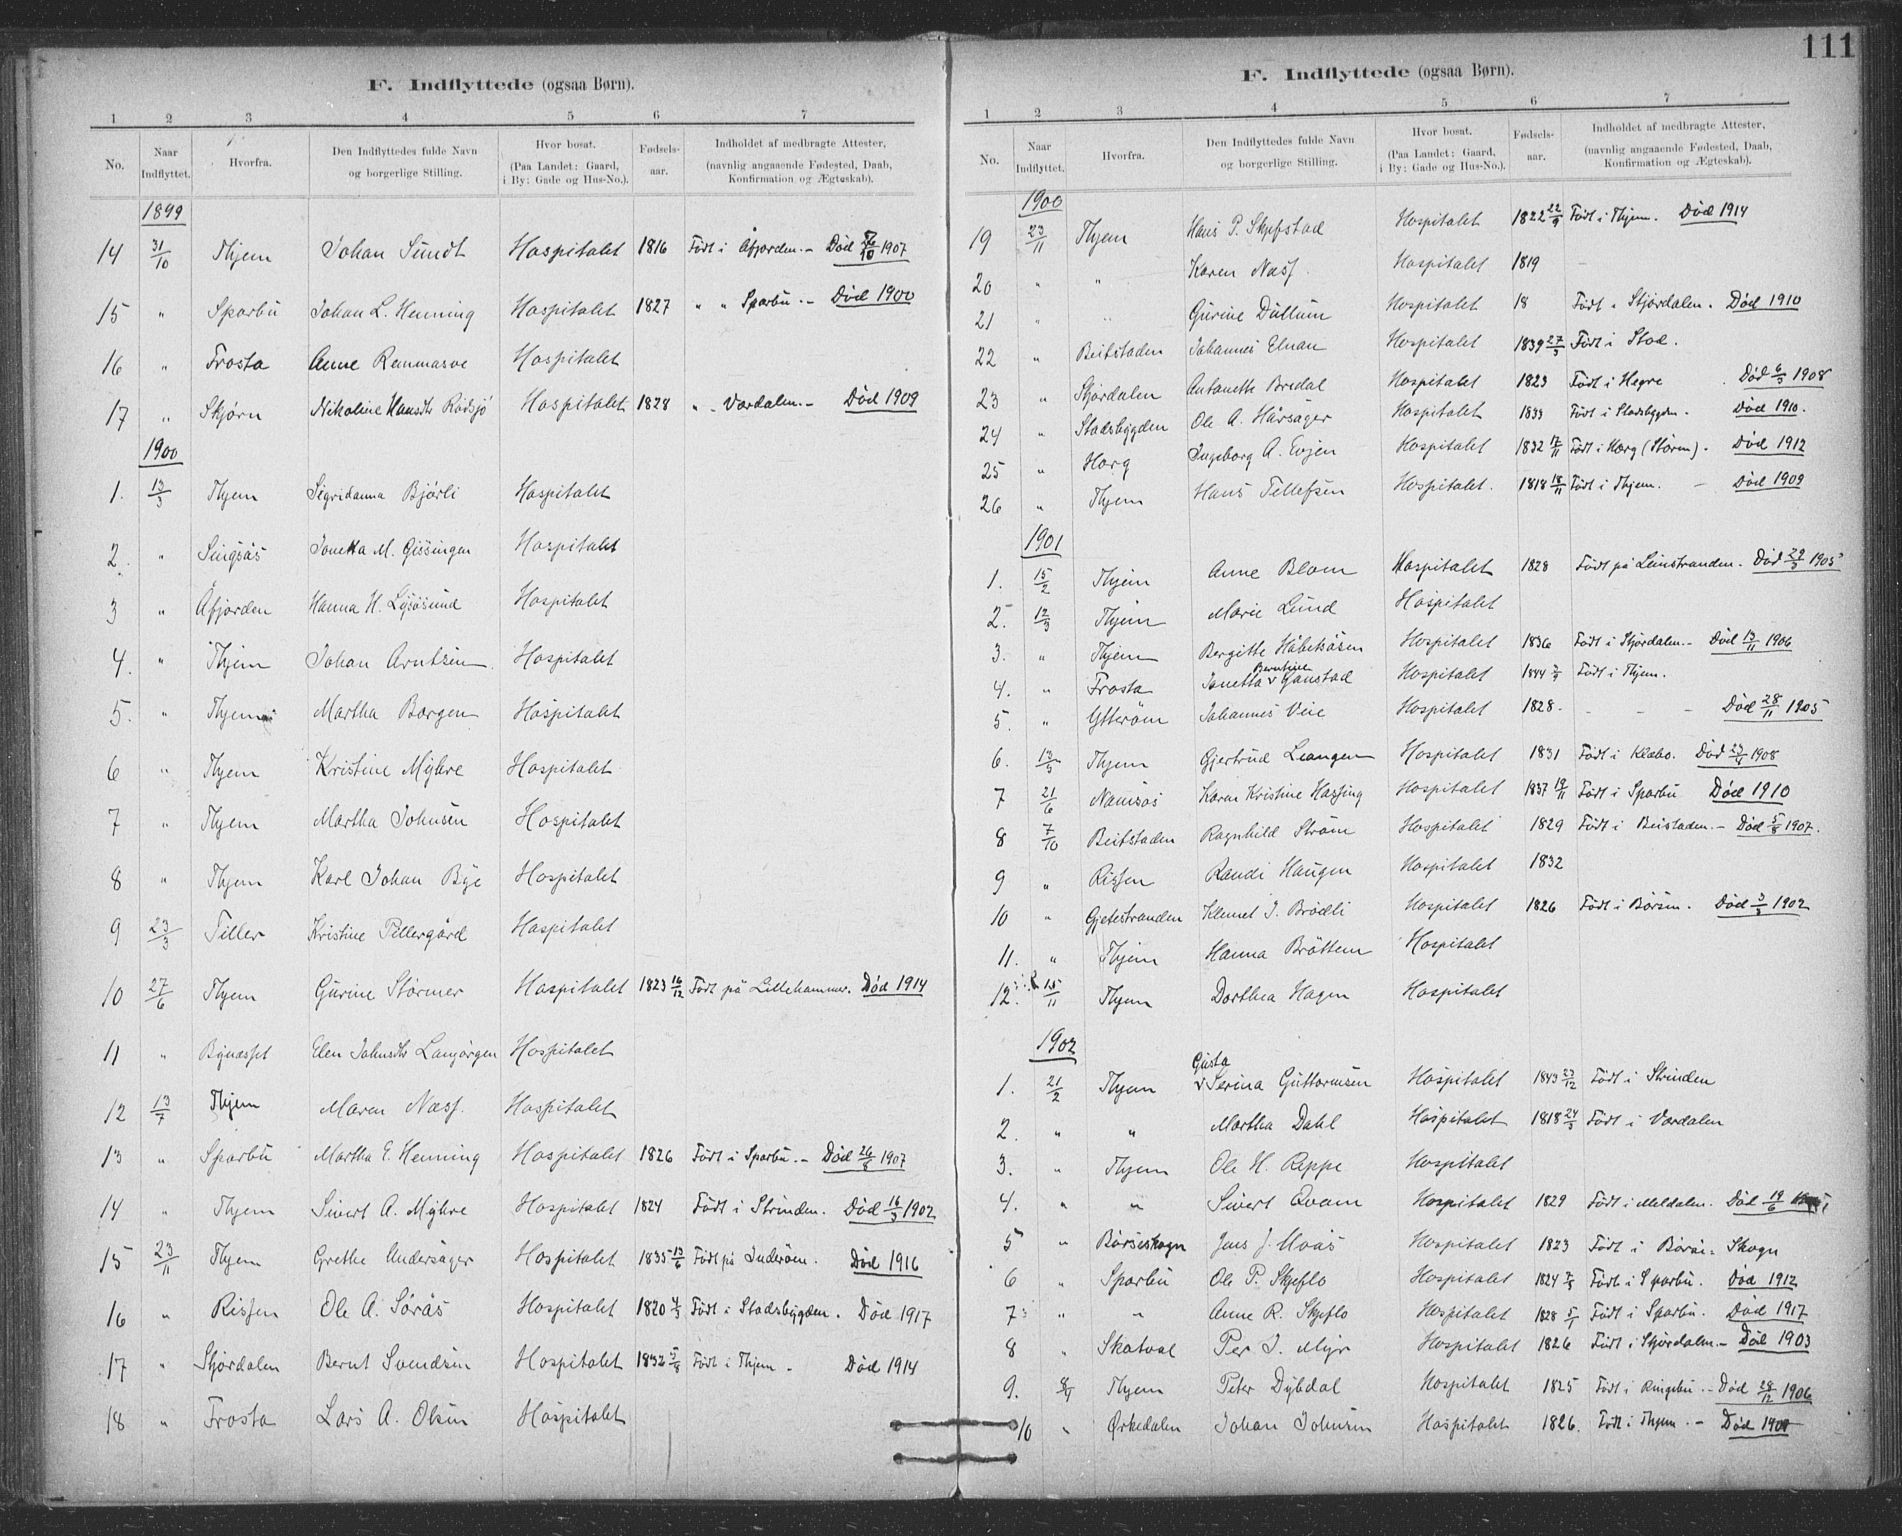 111
F. Indflyttede (ogsaa Børn).
1 2 3 4 5 6 7
No. Naar Indflyttet. Hvorfra. Den Indflyttedes fulde Navn og borgerlige Stilling. Hvor bosat. (Paa Landet: Gaard, i By: Gade og Hus-No.). Fødsels-aar. Indholdet af medbragte Attester, (navnlig angaaende Fødested, Daab, Konfirmation og Ægteskab).
1899
14 31/10 Thjem Johan Sundt Hospitalet 1816 Født i Åfjorden. – Død /10 1907
15 " Sparbu Johan L. Henning Hospitalet 1827 " " Sparbu. – Død 1900
16 " Frosta Anne Remmasve Hospitalet
17 " Skjørn Nikoline Hansdtr Rødsjö Hospitalet 1828 " " Værdalen. – Død 1909
1900
1. 13/3 Thjem Sigridanna Bjørli Hospitalet
2. " Singsås Jonetta M. Gissinger Hospitalet
3 " Åfjorden Hanna H. Lysøsund Hospitalet
4. " Thjem Johan Arntsen Hospitalet
5. " Thjem Martha Borgen Hospitalet
6 " Thjem Kristine Myhre Hospitalet
7 " Thjem Martha Johnsen Hospitalet
8 " Thjem Karl Johan Bye Hospitalet
9 23/3 Tiller Kristine Tillergård Hospitalet
10 27/6 Thjem Gurine Størmer Hospitalet 1823 16/12 Født på Lillehammer. Død 1914
11 " Bynæsset Elen Johnsdtr Langørgen Hospitalet
12 13/7 Thjem Maren Næss. Hospitalet
13 " Sparbu Martha E. Henning Hospitalet 1826 Født i Sparbu. – Død 26/8 1907
14 " Thjem Sivert A. Myhre Hospitalet 1824 Født i Strinden. Død 16/3 1902
15 23/11 Thjem Grethe Andersager Hospitalet 1835 13/6 Født på Inderøen. Død 1916
16 " Rissen Ole A. Sørås Hospitalet 1820 4/3 Født i Stadsbygden. Død 1917
17 " Stjørdalen Bernt Svendsen Hospitalet 1832 5/8 Født i Thjem – Død 1914
18 " Frosta Lars A. Olsen Hospitalet
F. Indflyttede (ogsaa Børn).
1 2 3 4 5 6 7
No. Naar Indflyttet. Hvorfra. Den Indflyttedes fulde Navn og borgerlige Stilling. Hvor bosat. (Paa Landet: Gaard, i By: Gade og Hus-No.). Fødsels-aar. Indholdet af medbragte Attester, (navnlig angaaende Fødested, Daab, Konfirmation og Ægteskab).
1900
19 23/11 Thjem Hans P. Skjefstad Hospitalet 1822 22/9 Født i Thjem. Død 1914
20 " " Karen Næss. Hospitalet 1819 –
21 " " Gurine Dullum Hospitalet 18 Født i Stjørdalen. Død 1910
22 " Beitstaden Johannes Elnan Hospitalet 1839 27/3 Født i Stod.
23 " Stjørdalen Antonette Bredal Hospitalet 1823 Født i Hegre. Død 6/3 1908
24 " Stadsbygden Ole A. Hårsager Hospitalet 1833 Født i Stadsbygden. Død 1910.
25 " Horg Ingeborg A. Evjen Hospitalet 1832 17/11 Født i Horg (Støren). Død 1912
26 " Thjem Hans Tellefsen Hospitalet. 1818 18/11 Født i Thjem. – Død 1909
1901
1. 15/2 Thjem Anne Blom Hospitalet 1828 Født på Leinstranden. Død 29/3 1905
2. 12/3 Thjem Marie Lund Hospitalet
3. " Thjem Bergitte Håbetsåsen Hospitalet 1836 Født i Stjørdalen – Død 13/11 1906
4. " Frosta Janetta Berntine Ganstad Hospitalet 1844 Født i Thjem.
5. " Ytterøen Johannes Veie Hospitalet 1828. – – – Død 28/11 1905
6. 13/5 Thjem Gjertrud Leangen Hospitalet 1831 Født i Klæbo. Død 23/4 1908
7 21/6 Namsos Karen Kristine Hassing Hospitalet 1837 19/11 Født i Sparbu Død 1910
8 7/10 Beitstaden Ragnhild Strøm Hospitalet 1829 Født i Beitstaden. – Død 5/8 1907.
9 " Rissen Randi Haugen Hospitalet 1832
10 " Gjetestranden Klemet J. Brødli Hospitalet 1826 Født i Børsen. Død 3/3 1902
11. " Thjem Hanna Brøttem Hospitalet
12. 15/11 Thjem Dorthea Hagen Hospitalet
1902
1. 21/2 Thjem Gusta Serina Guttormsen Hospitalet 1843 23/12 Født i Strinden
2. " " Martha Dahl Hospitalet 1818 24/3 Født i Værdalen
3. " Thjem Ole H. Reppe Hospitalet
4. " " Sivert Qvam Hospitalet 1829 Født i Meldalen. Død 19/6
5 " Børseskogn Jens J. Moås Hospitalet 1823 Født i Børse-Skogn
6 " Sparbu Ole P. Skjeflo Hospitalet 1824 7/3 Født i Sparbu. Død 1912
7 " " Anne R. Skjeflo Hospitalet 1828 5/1 Født i Sparbu. Død 1917
8 " Skatval Per J. Myr Hospitalet 1826 Født i Stjørdalen – Død 1903
9. 8/4 Thjem Peter Dybdal Hospitalet 1825 Født i Ringebu. – Død 28/12 1906
10 " Ørkedalen Johan Johnsen Hospitalet 1826. Født i Thjem. – Død